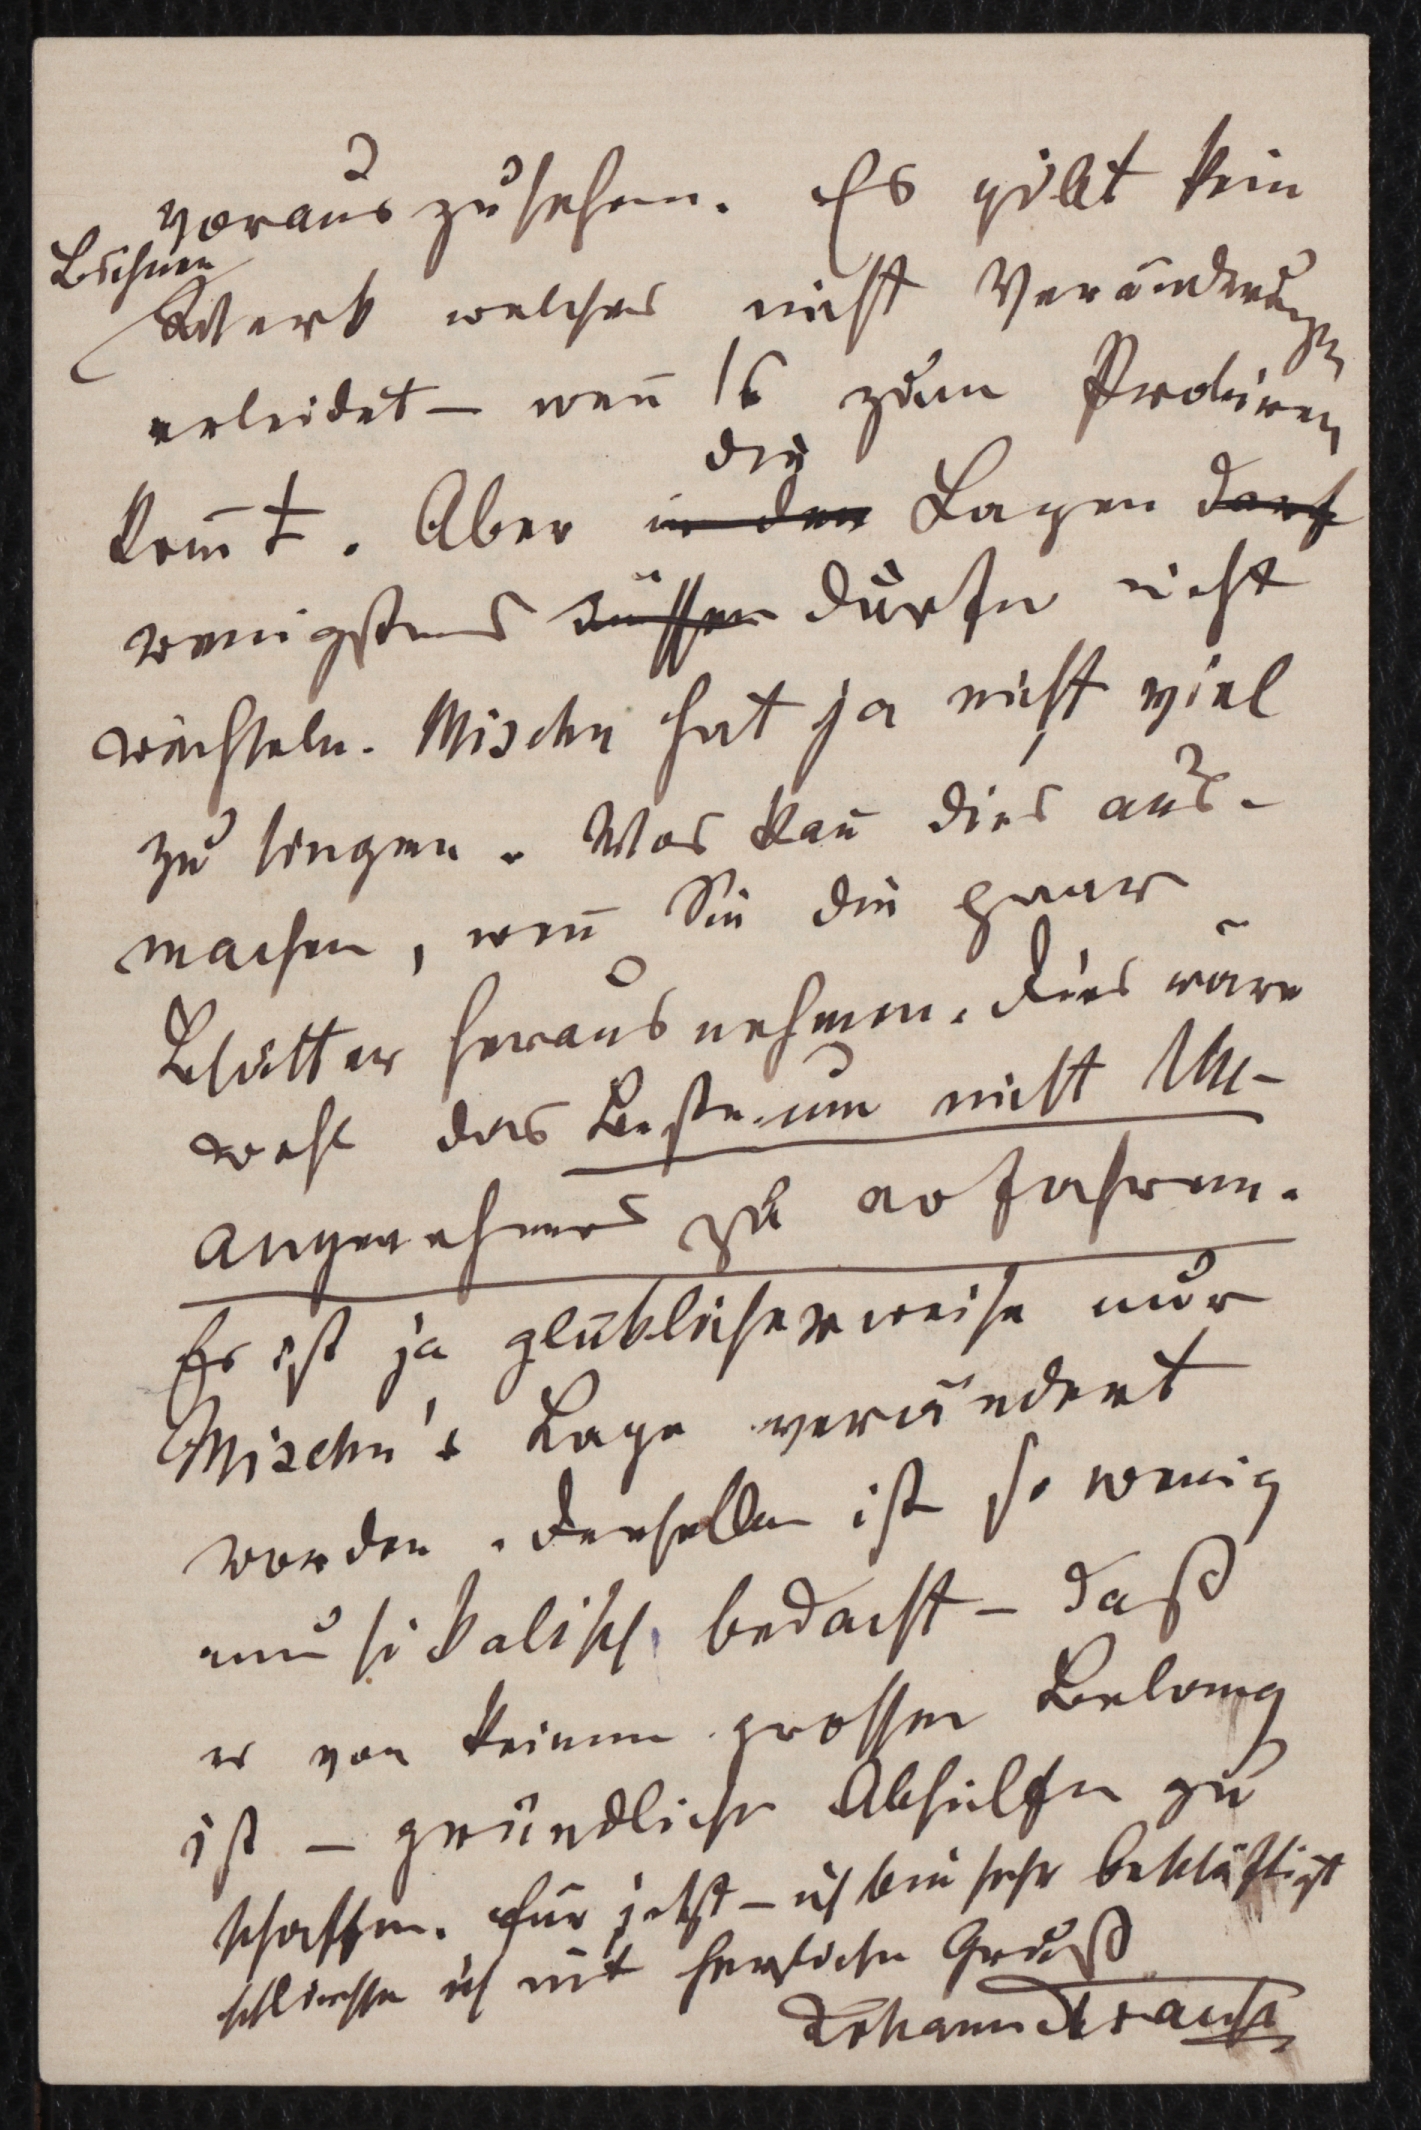 vorauszusehen. Es gibt kein
Bühnen
Werk welches nicht Veränderungen
erleidet – wen̄ es zum Probiren
kom̄t. Aber in den die Lagen darf
wenigstens müssen dürfen nicht
wechseln. Mischu hat ja nicht viel
zu singen. Was kan̄ dies aus-
machen, wen̄ Sie die paar
Blätter herausnehmen. Dies wäre
wohl das Beste um nicht Un-
angenehmes zu erfahren.
Es ist ja glüklicherweise nur
Mischu's Lage verändert
worden. Derselbe ist so wenig
musikalisch bedacht – daß
es von keinem grossen Belang
ist – gründliche Abhülfe zu
schaffen. Für jetzt – ich bin sehr beschäftigt
schliesse ich mit herzlichen Gruß
Johann Strauss